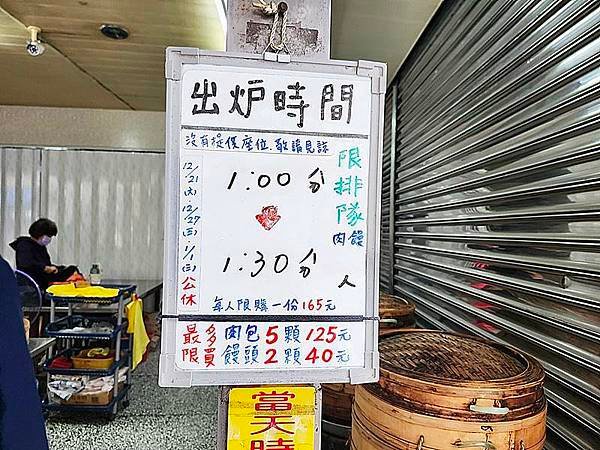 出炉時間
沒有提供座位.敬請見諒
12/21(六)、12/27(五)、1/1(三)公休
限排隊
肉饅
1:00分
1:30分
人
每人限購一份165元
最多肉包5顆125元
限買饅頭2顆40元
當天時